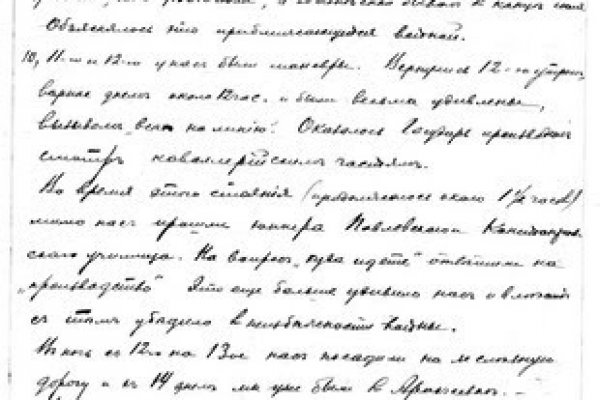 Объяснялось это приближающейся войной.
10, 11-го и 12-го у нас были маневры. Вернулись 12-го утром,
вернее днем около 12 час. и были весьма удивлены,
вызовом "всех на линию". Оказалось Государь производил
смотр кавалерийским частям.
Во время этого стояния (продолжалось около 1½ часов)
мимо нас прошли юнкера Павловского и
ского училища. На вопрос "куда идете" ответили на
"производство" Это еще больше удивило нас и
с тем убедило в неизбежности войны.
В ночь с 12го на 13ое нас посадили на железную
дорогу и к 14 днем мы уже были в